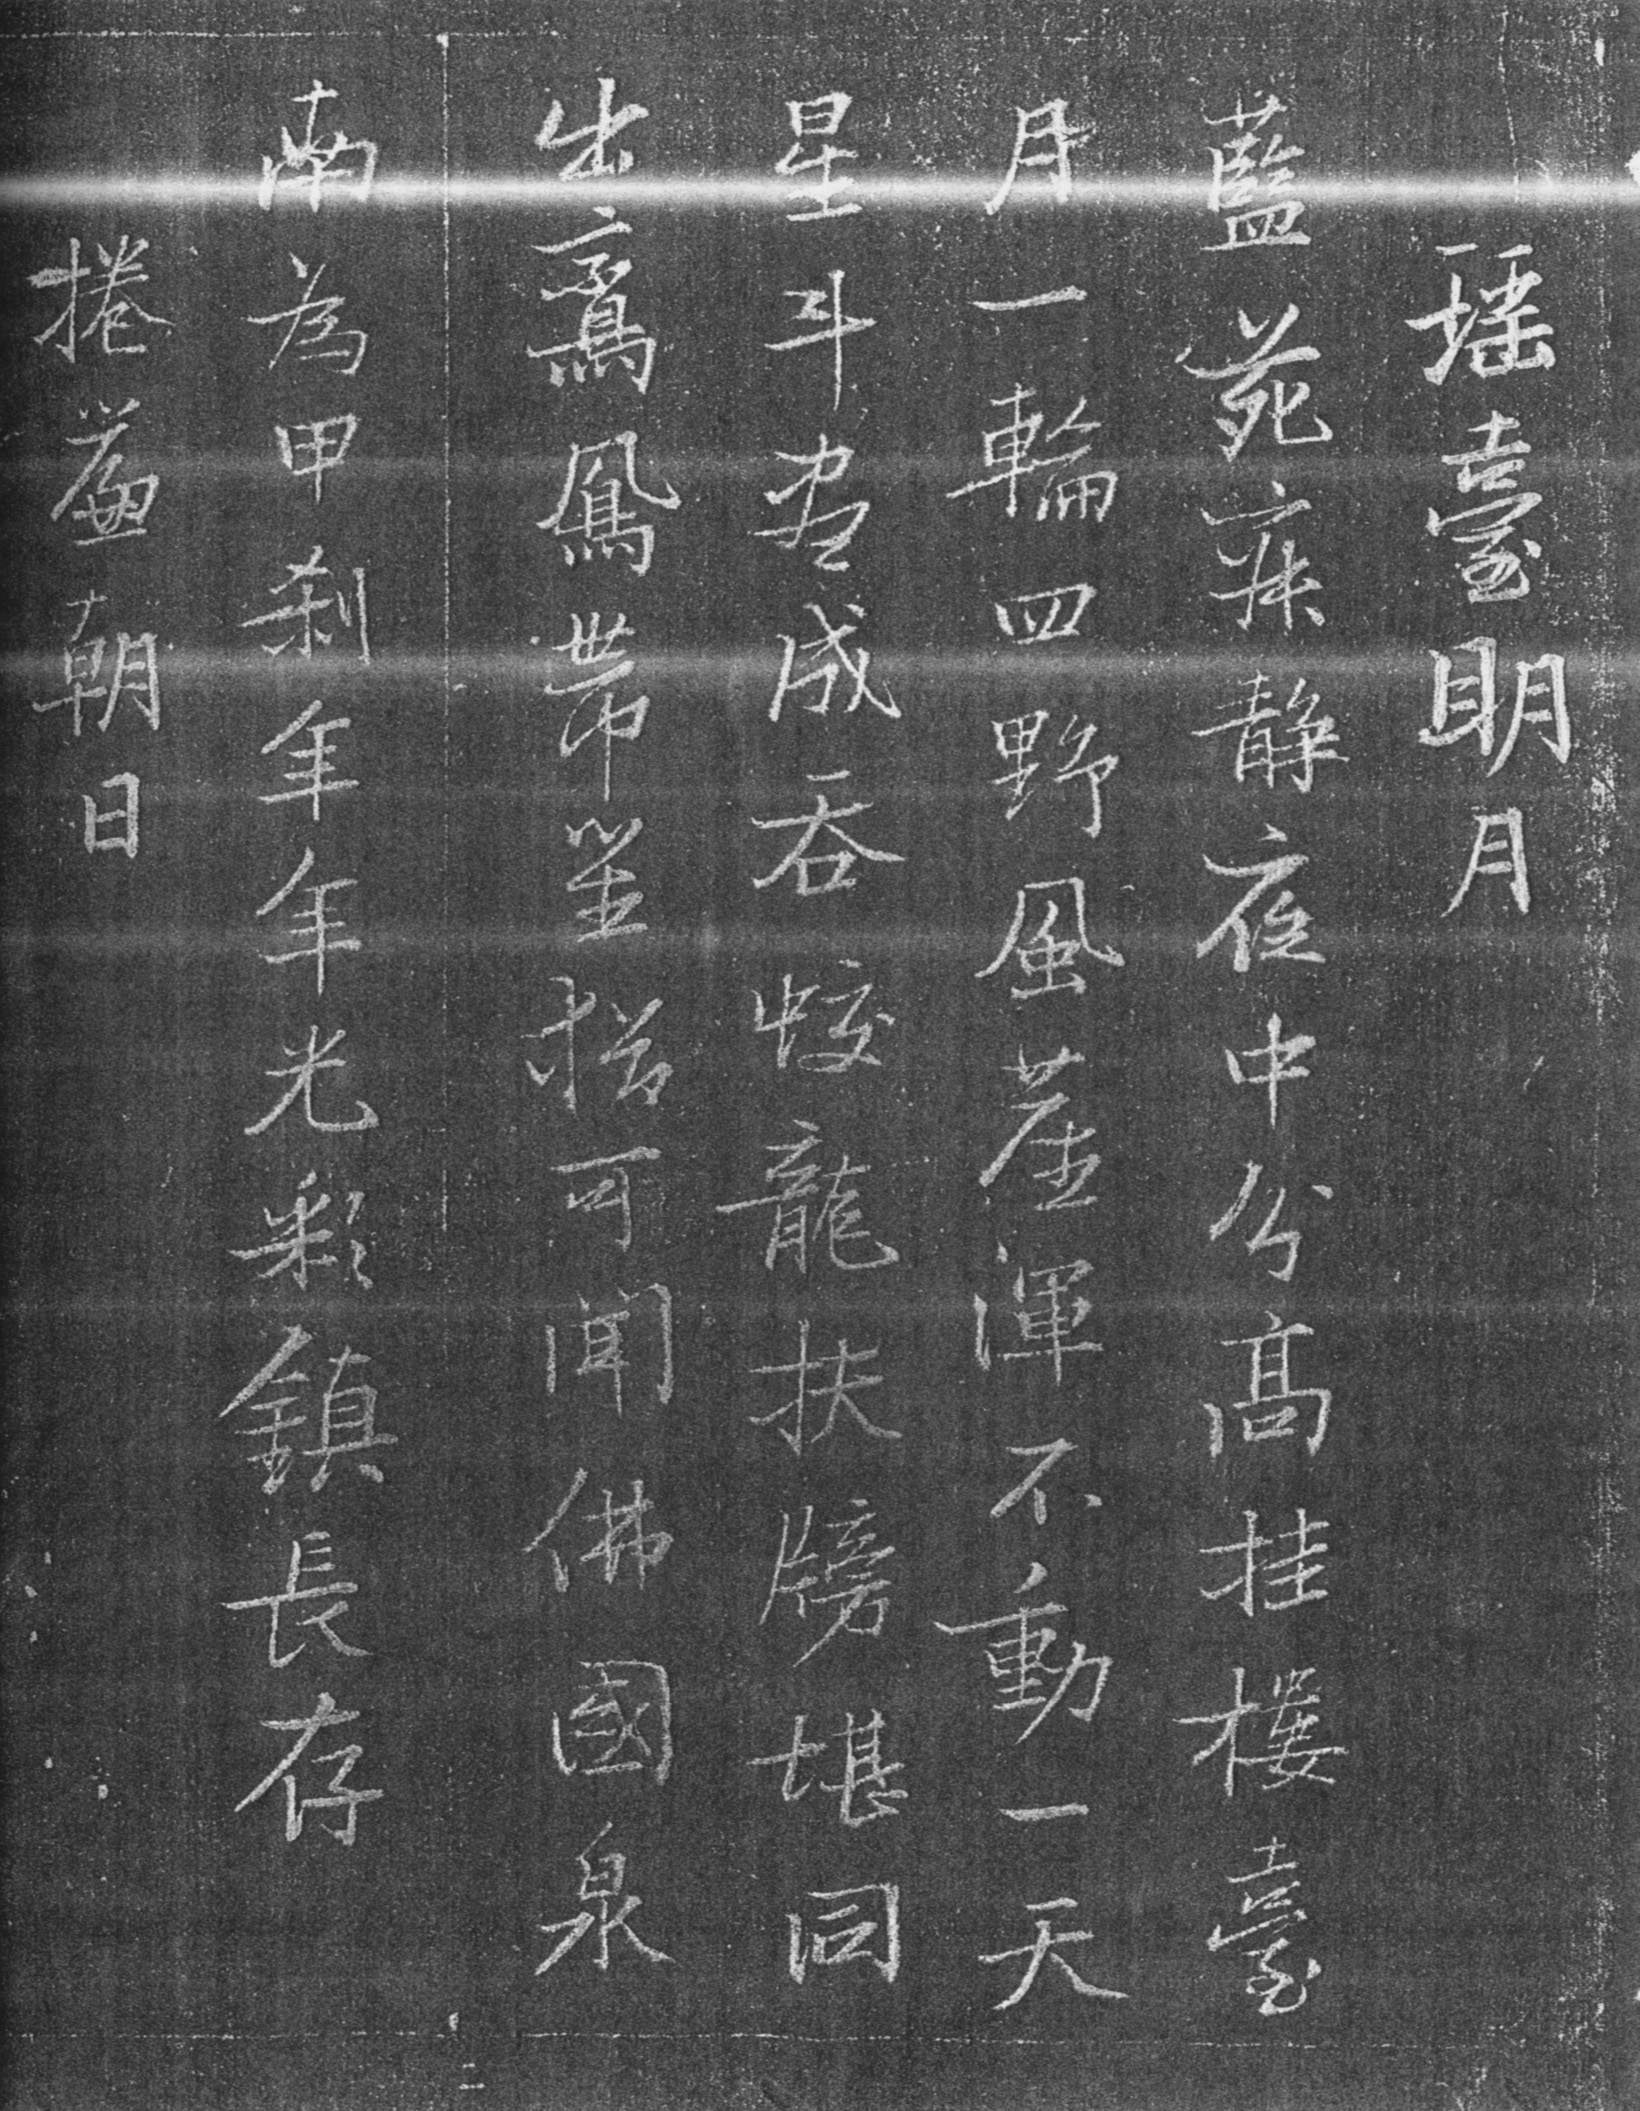 瑶臺明月
藍苑寂静夜中分高挂樓臺
月一輪四野風塵渾不動一天
星斗盡成吞蛟龍扶牓堪同
出鸞鳳帶坐招可聞佛國泉
南為甲刹年年光彩鎮長存
捲簾朝日